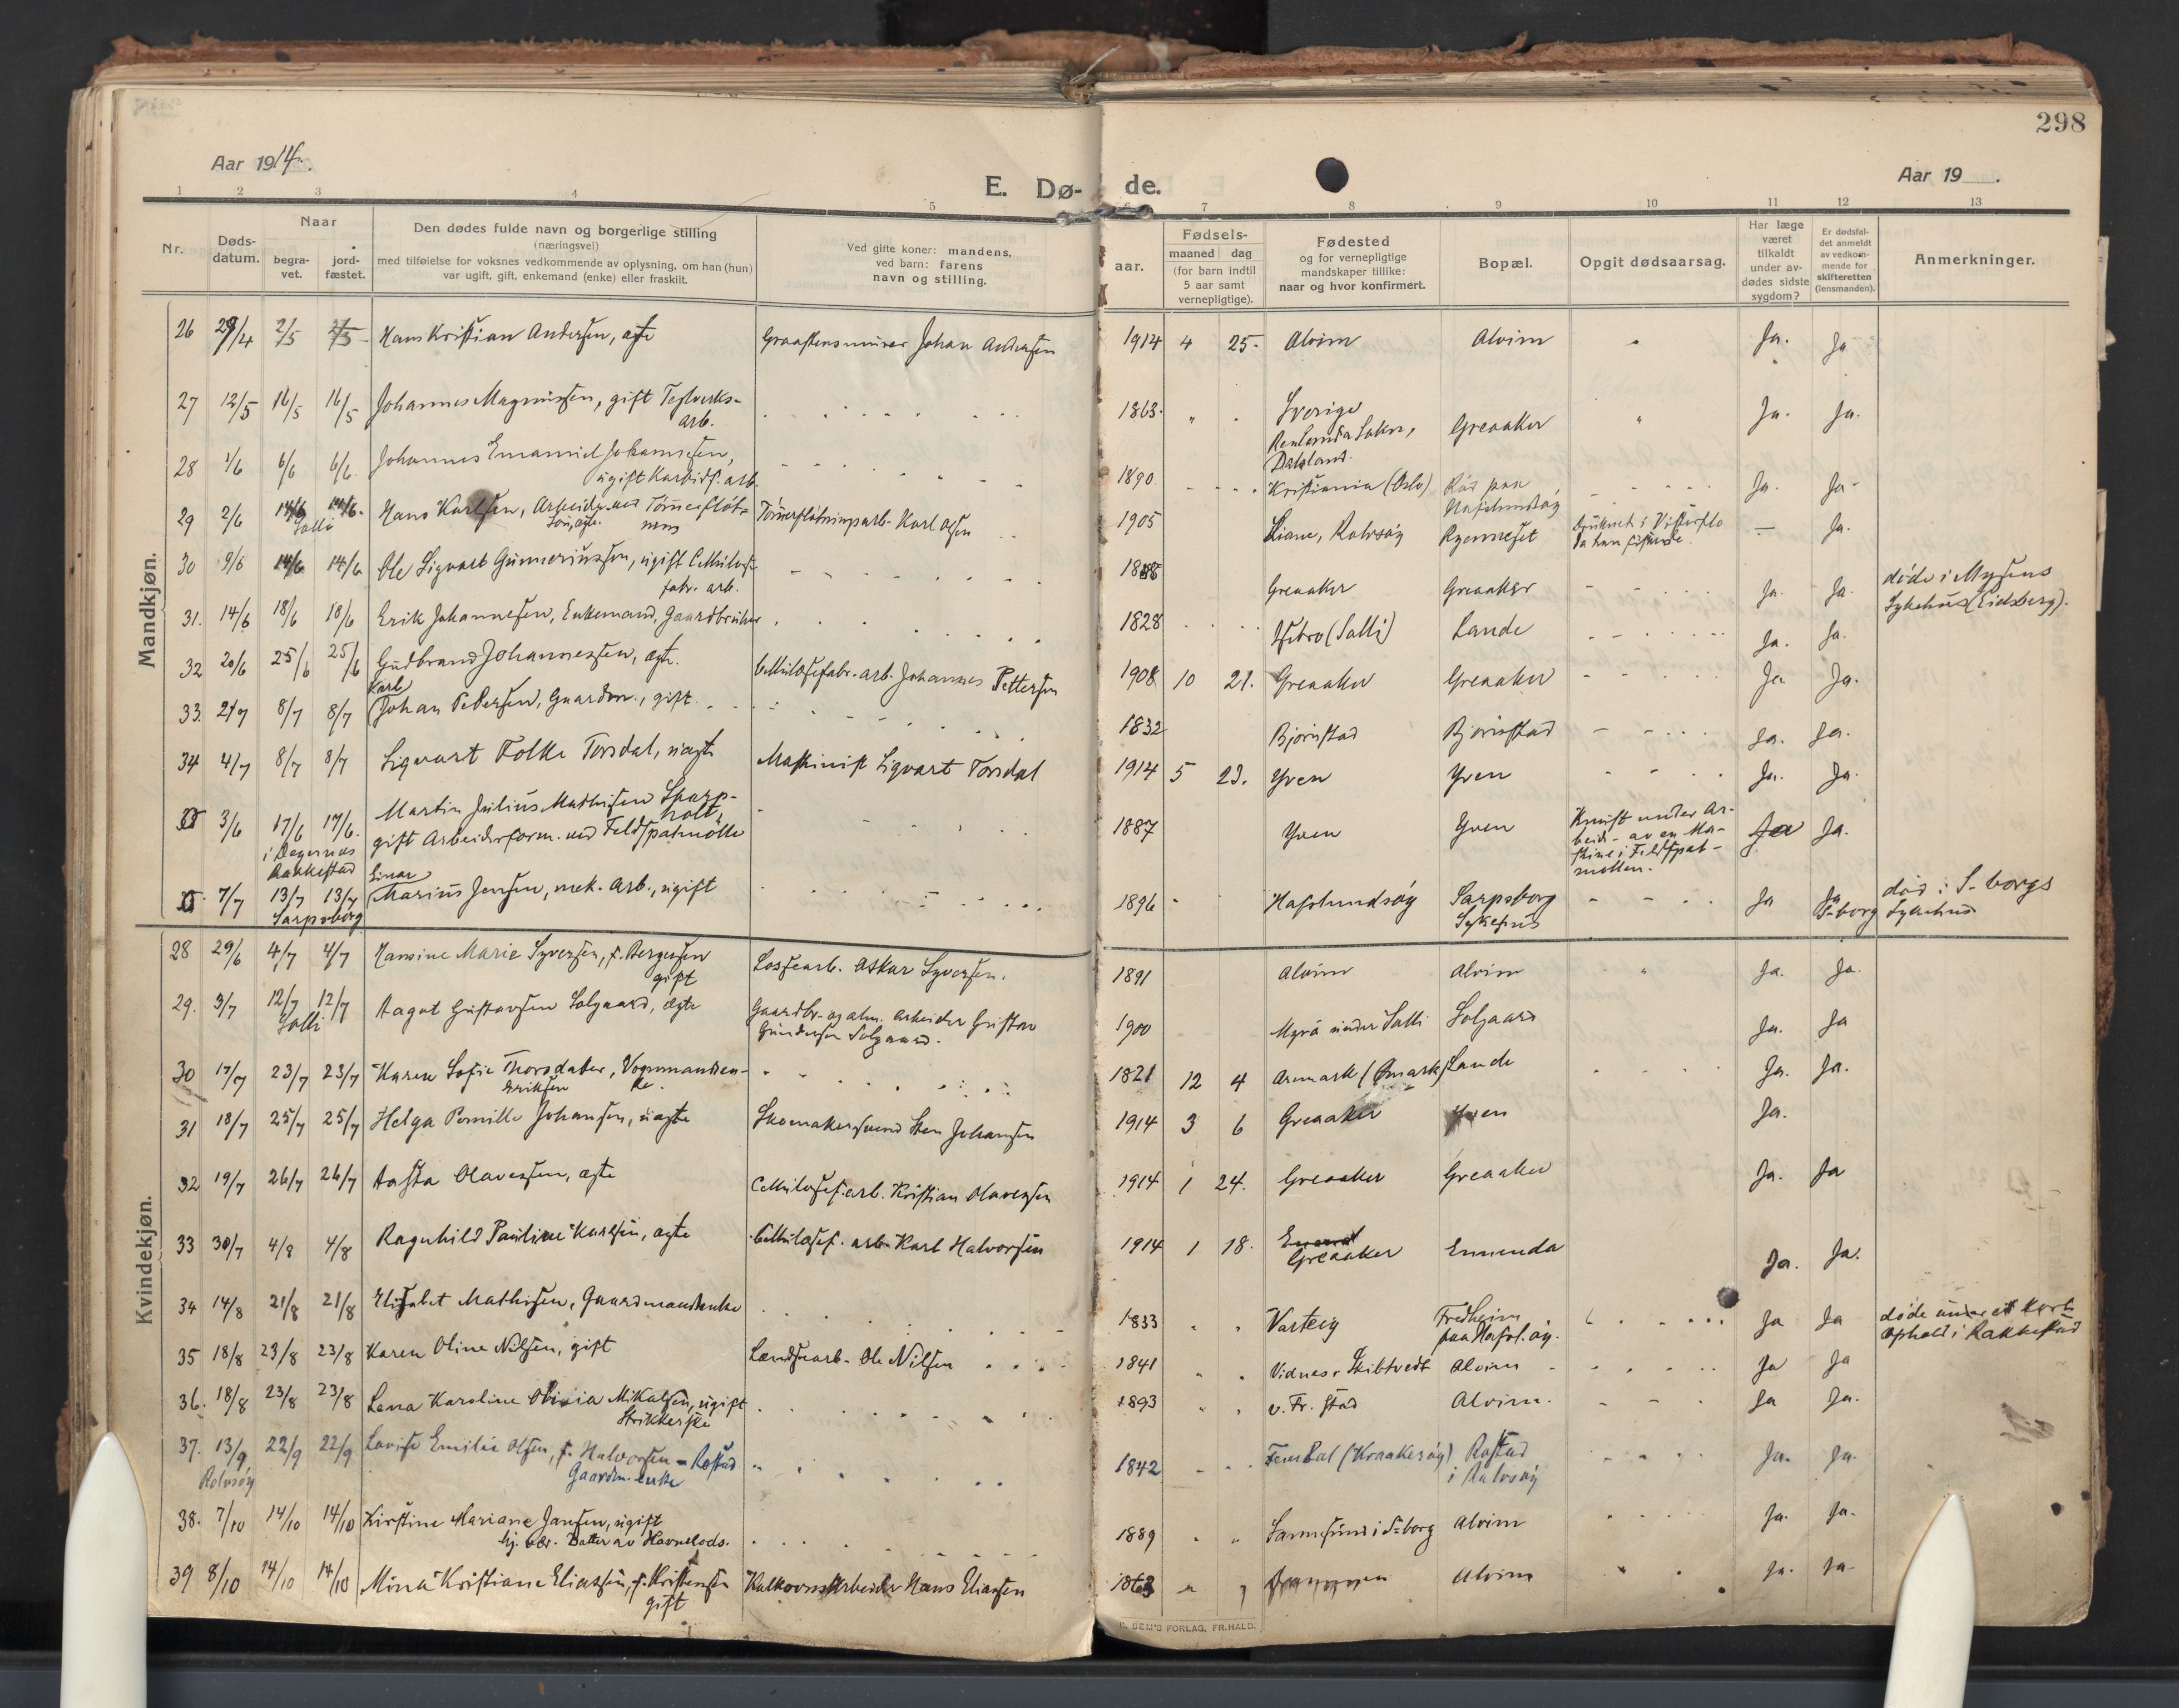 298
Aar 1914.
Aar 19 .
E. Dø- de.
1 2 3 4 5 6 7 8 9 10 11 12 13
Nr.
Døds-
datum.
Naar
begra-
vet.
jord-
fæstet.
Den dødes fulde navn og borgerlige stilling
(næringsvei)
med tilføielse for voksnes vedkommende av oplysning, om han (hun)
var ugift, gift, enkemand (enke) eller fraskilt.
Ved gifte koner: mandens,
ved barn: farens
navn og stilling.
Fødsels-
aar.
maaned dag
(for barn indtil
5 aar samt
vernepligtige).
Fødested
og for vernepligtige
mandskaper tillike:
naar og hvor konfirmert.
Bopæl.
Opgit dødsaarsag.
Har læge
været
tilkaldt
under av-
dødes sidste
sygdom?
Er dødsfal-
det anmeldt
av vedkom-
mende for
skifteretten
(lensmanden).
Anmerkninger.
Mandkjøn.
26 29/4 2/5 2/5 Hans Kristian Andersen, ægte Graastensmurer Johan Andersen 1914 4 25. Alvim Alvim Ja. Ja
27 12/5 16/5 16/5 Johannes Magnussen, gift Teglverks- 1863. Sverige Greaaker Ja. Ja.
arb.
Dalsland.
28 1/6 6/6 6/6 Johannes Emanuel Johannesen, 1890 Kristiania (Oslo) Ja. Ja.
ugift Karbidf. arb. Hafslundsøy
29 2/6 14/6 14/6. Hans Karlsen, Arbeider ved Tømmerfløt- Tømmerfløtningsarb. Karl Olsen 1905 Liane, Rolvsøy Druknet i Visterflo — Ja.
Solli ning da han fiskede.
30 9/6 14/6 14/6 Ole Sigvart Gunneriussen, ugift Cellulose- Greaaker Greaaker Ja. Ja. døde i Mysens
fabr. arb. Sykehus (Eidsberg).
31. 14/6 18/6 18/6 Erik Johannesen, Enkemand, Gaardbruker 1828 (Solli) Lande Ja. Ja.
32 20/6 25/6 25/6 Gudbrand Johannessen, ægte. Cellulosefabr. arb. Johannes Pettersen 1908 10 21. Greaaker Greaaker Ja Ja.
Karl
33. 2/7 8/7 8/7 Johan Pedersen, Gaardm., gift 1832 Bjørnstad Bjørnstad Ja. Ja.
34 4/7 8/7 8/7 Sigvart Folke Torsdal, uægte Maskinist Sigvart Torsdal 1914 5 23. Yven Yven Ja. Ja.
3/6 17/6 17/6. Martin Julius Mathisen Skarp- 1887 Yven Yven Knust under Ar- Ja Ja.
holt, beide av en Ma-
i Degernes gift Arbeidsform. ved Feldspatmølle skine i Feldspat-
Rakkestad møllen.
Einar
7/7 13/7 13/7 Marius Jensen, mek. Arb., ugift 1896 Hafslundsøy Sarpsborg Ja Ja død i S-borgs
Sarpsborg Sykehus S-borg Sykehus
Kvindekjøn.
28 29/6 4/7 4/7 Hansine Marie Syversen, f. Bergersen Lossearb. Askar Syversen. 1891 Alvim Alvim Ja. Ja.
gift
29. 3/7 12/7 12/7 Aagot Gustavsen Solgaard, ægte Gaardbr. og alm. Arbeider Gustav 1900 Myra under Solli Solgaard Ja. Ja
Solli Gundersen Solgaard.
30 17/7 23/7 23/7 Karen Sofie Thorsdatter, Vognmandsen- 1821 12 4 Aremark (Ømark) Lande Ja. Ja.
Eriksen ke.
31 18/7 25/7 25/7 Helga Pernille Johansen, uægte Skomakersvend Sten Johansen 1914 3 6 Greaaker Yven Ja.
32 19/7 26/7 26/7 Aasta Olavessen, ægte Cellulosef. arb. Kristian Olavessen 1914 1 24. Greaaker Greaaker Ja. Ja
33 30/7 4/8 4/8 Ragnhild Pauline Karlsen, ægte Cellulosef. arb. Karl Halvorsen 1914 1 18. Greaaker Ennenda Ja. Ja.
34 14/8 21/8 21/8 Elisabet Mathisen, Gaardmandsenke 1833 Varteig Fredheim Ja Ja døde under et kort
paa Hafsl.øy. ophold i Rakkestad
35 18/8 23/8 23/8 Karen Oline Nilsen, gift Landsarb. Ole Nilsen 1841 Vidnes, Skibtvedt Alvim Ja Ja
36. 18/8 23/8 23/8 Lena Karoline Olivia Mikalsen, ugift 1893 v. Fr.stad Alvim. Ja Ja.
Strikkerske
37. 13/9 22/9 22/9 Lovise Emilie Olsen, f. Halvorsen - Rostad 1842 (Kraakerøy) Rostad Ja. Ja.
Rolvsøy Gaardm. enke i Rolvsøy
38. 7/10 14/10 14/10 Kirstine Mariane Jansen, ugift 1889 Sannesund i S-borg Alvim Ja. Ja.
Datter av Havnelods.
39 8/10 14/10 14/10 Mina Kristiane Eliassen, f. Kristensen Kalkovnsarbeider Hans Eliassen 1863 Alvim Ja. Ja.
gift
E. SEM'S FORLAG, FR.HALD.